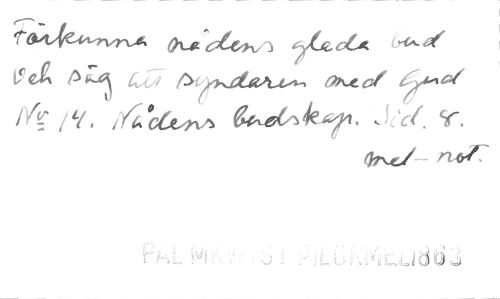 Förkunna nådens glada bud
och säg att syndaren med Gud
No 14. Nådens budskap. Sid. 8.
mel-not.
PALMKVIST PILGRMEL 1863